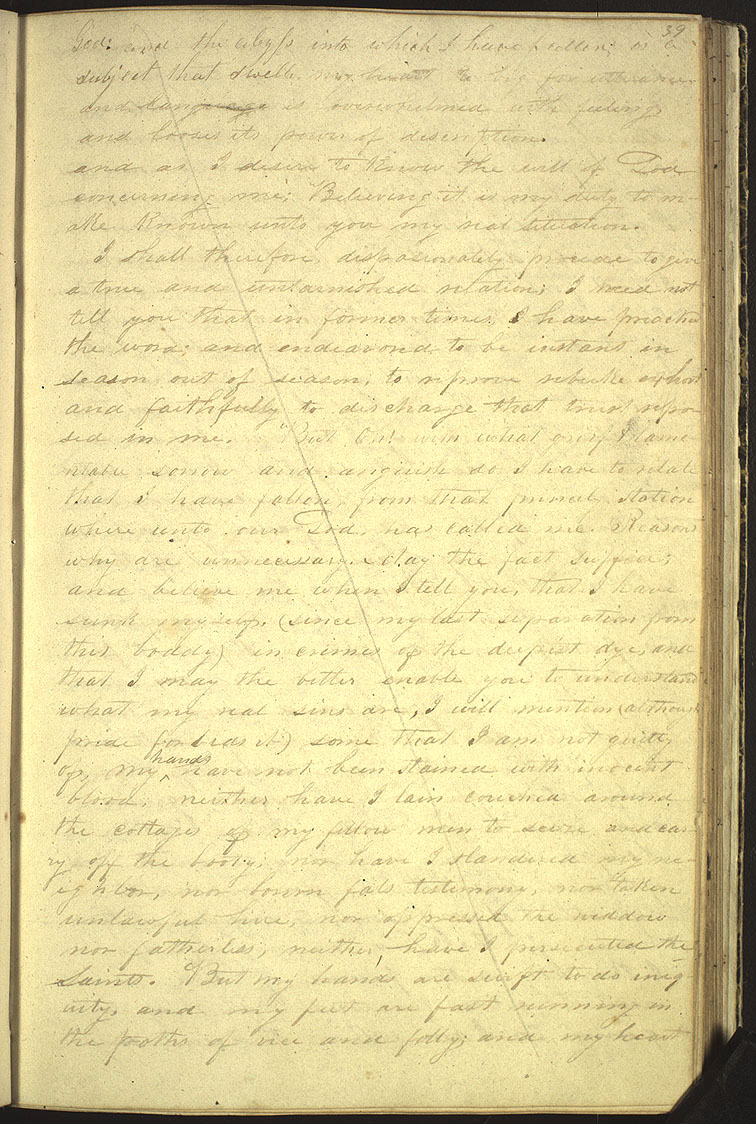 39
God: and the abyss into which I have fallen; is a
subject that swells my heart to big for utterance
and language is overwhelmed with feeling
and looses its power of description.
and as I desire to know the will of God
concerning me; Believing it is my duty to m-
ake known unto you my real situation.
I shall therefore, dispasionately procede to give
a true and untarnished relation; I need not
tell you that in former times, I have preached
the word; and endeavored to be instant in
season out of season, to reprove rebuke exhort
and faithfully to discharge that trust repo-
sed in me. But Oh! with what grief & lame-
ntable sorrow and anguish do I have to relate
that I have fallen, from that princely station
where unto our God, has called me. Reasons
why are unnecessary. May the fact suffice;
and believe me when I tell you, that I have
sunk myself, (since my last separation from
this boddy) in crimes of the deepest dye, and
that I may the better enable you to understand
what my real sins are, I will mention (although
pride forbids it) some that I am not guilty
of, my hands have not been stained with inocent
blood; neither have I lain couched around
the cottages of my fellow men to seize and car-
ry off the booty; nor have I slandered my ne-
ighbor, nor bourn fals testimony, nor taken
unlawful hire, nor oppressed the widdow
nor fatherless, neither have I persecuted the
Saints. But my hands are swift to do iniq-
uity, and my feet are fast running in
the paths of vice and folly; and my heart